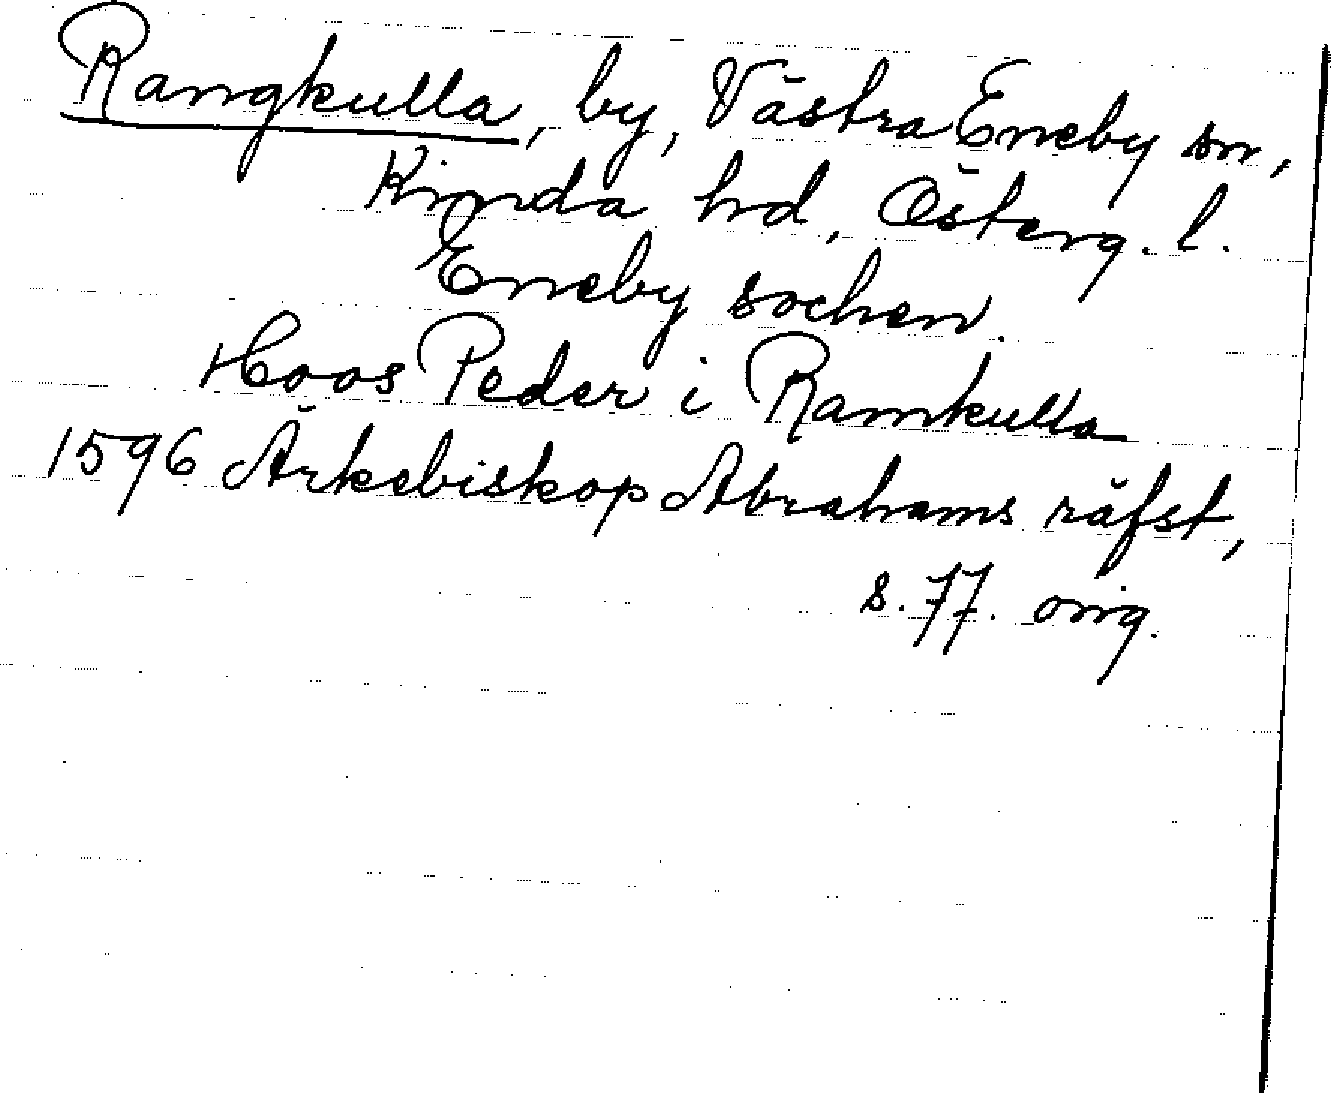 Rangkulla, by, Västra Eneby sn,
Kinda hd, Österg. l.
Eneby sochen.
Hoos Peder i Ramkulla
1596 Ärkebiskop Abrahams räfst,
s. 77. orig.